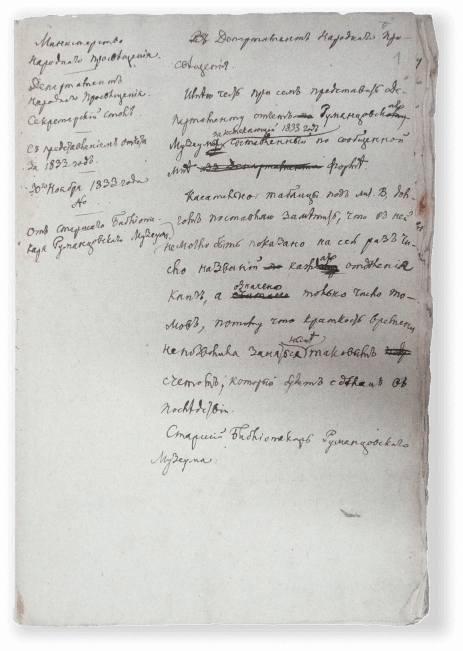 Министерство
Народнаго Просвещенія.
Департаментъ
Народнаго Просвещенія.
Секретарскій столъ
Съ представленіемъ отчета
за 1833 годъ.
30го Ноября 1833 года
№
Отъ Старшаго Библіоте-
каря Румянцовскаго Музеума,
1
Въ Департаментъ Народнаго Про-
свещенія.
Имею честь при семъ представить
партаменту отчетъ Румянцовскаго
за истекающій 1833 годъ
Музеума составленный по сообщенной
мне въ Департамента форме
Касательно таблицы подъ лит. В, дол-
гомъ поставляю заметить, что въ ней
не могло быть показано на сей разъ чи-
сло названій каждаго отделенія
означено
книгъ, а только число то-
мовъ, потому что краткость времени
мне
не позволила заняться таковымъ
счетомъ, который будетъ сделанъ въ
последствіи.
Старшій Библіотекарь Румянцовскаго
Музеума